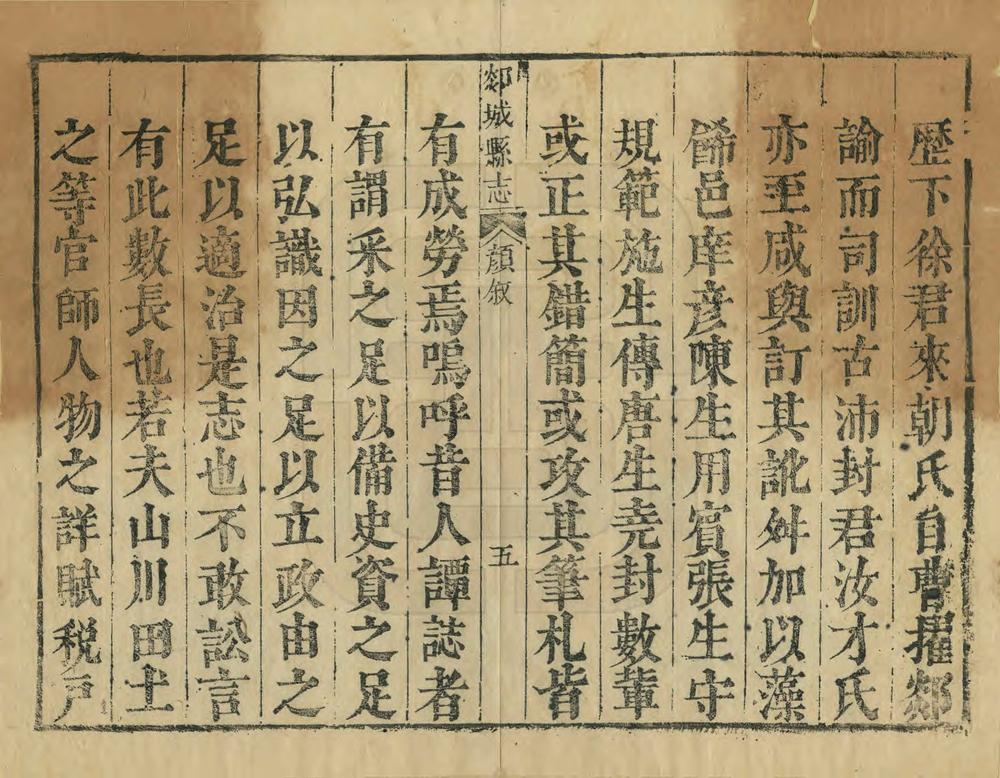 歷下徐君來朝氏自曹擢郯
諭而司訓古沛封君汝才氏
亦至咸與訂其訛舛加以藻
餙邑庠彥陳生用賓張生守
規範施生傳唐生堯封數輩
或正其錯簡或攻其筆札皆
郯城縣志
顔叙
五
有成勞焉嗚呼昔人譚誌者
有謂采之足以備史資之足
以弘識因之足以立政由之
足以適治是志也不敢訟言
有此數長也若夫山川田土
之等官師人物之詳賦稅戸